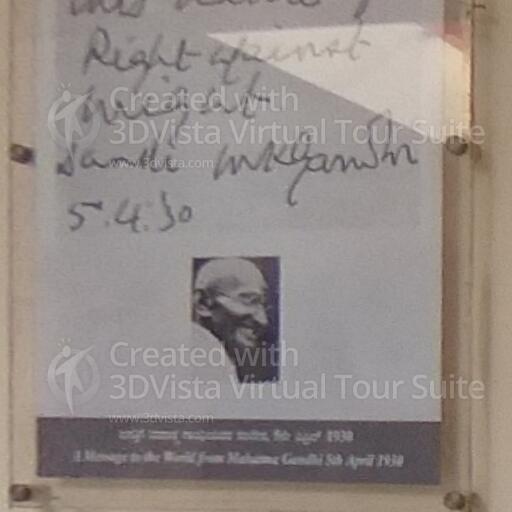 this battle of
Right against
might.
Dandi MKGandhi
5.4.30
Created with
3DVista Virtual Tour Suite
www.3dvista.com
Created with
3DVista Virtual Tour Suite
www.3dvista.com
1930
A Message to the World from Mahatma Gandhi 5th April 1930